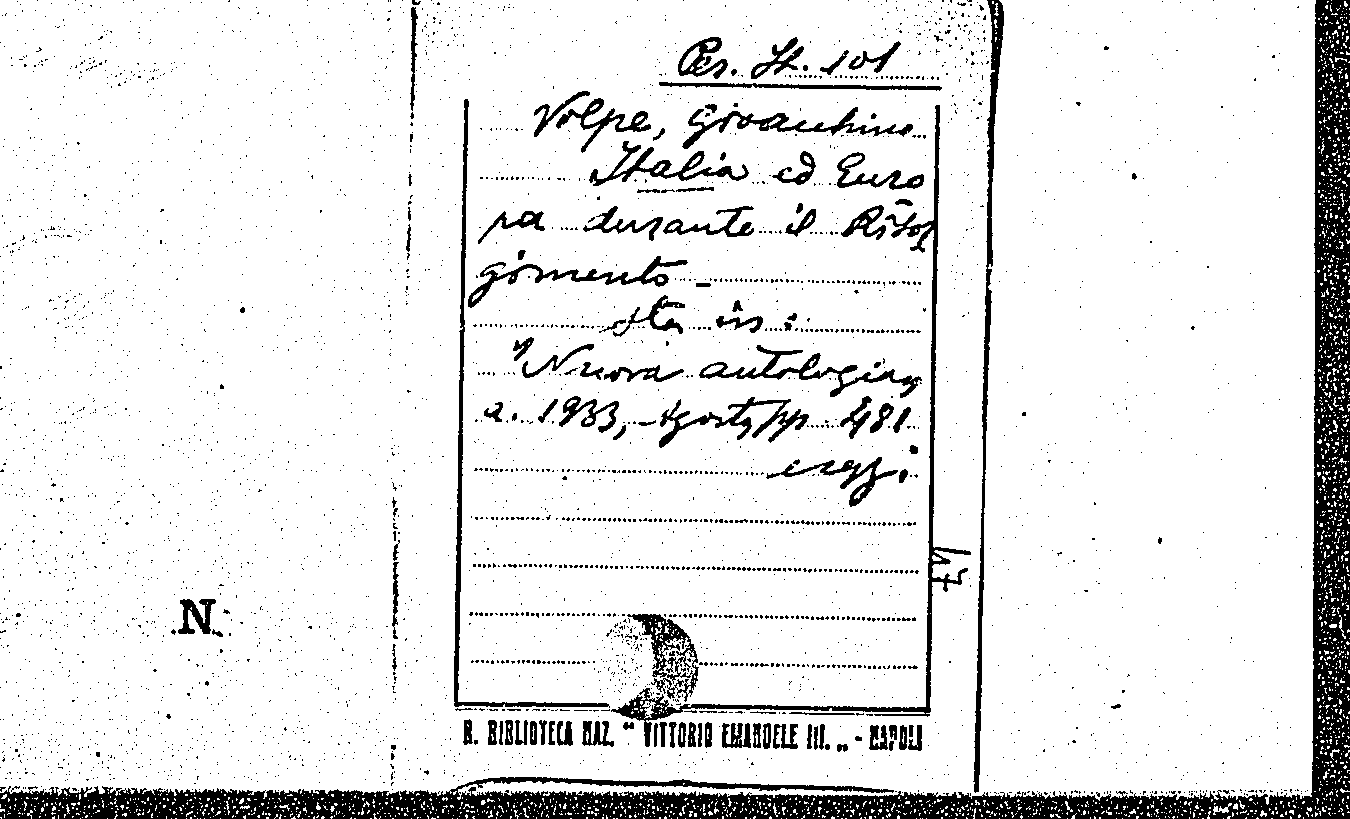 Per. It. 101
Volpe, Gioacchino
Italia ed Euro
pa durante il Risor
gimento -
Sta in:
"Nuova antologia"
a. 1933, Agosto, pp. 481
e segg.
N.
R. BIBLIOTECA NAZ. “ VITTORIO EMANUELE III. „ - NAPOLI